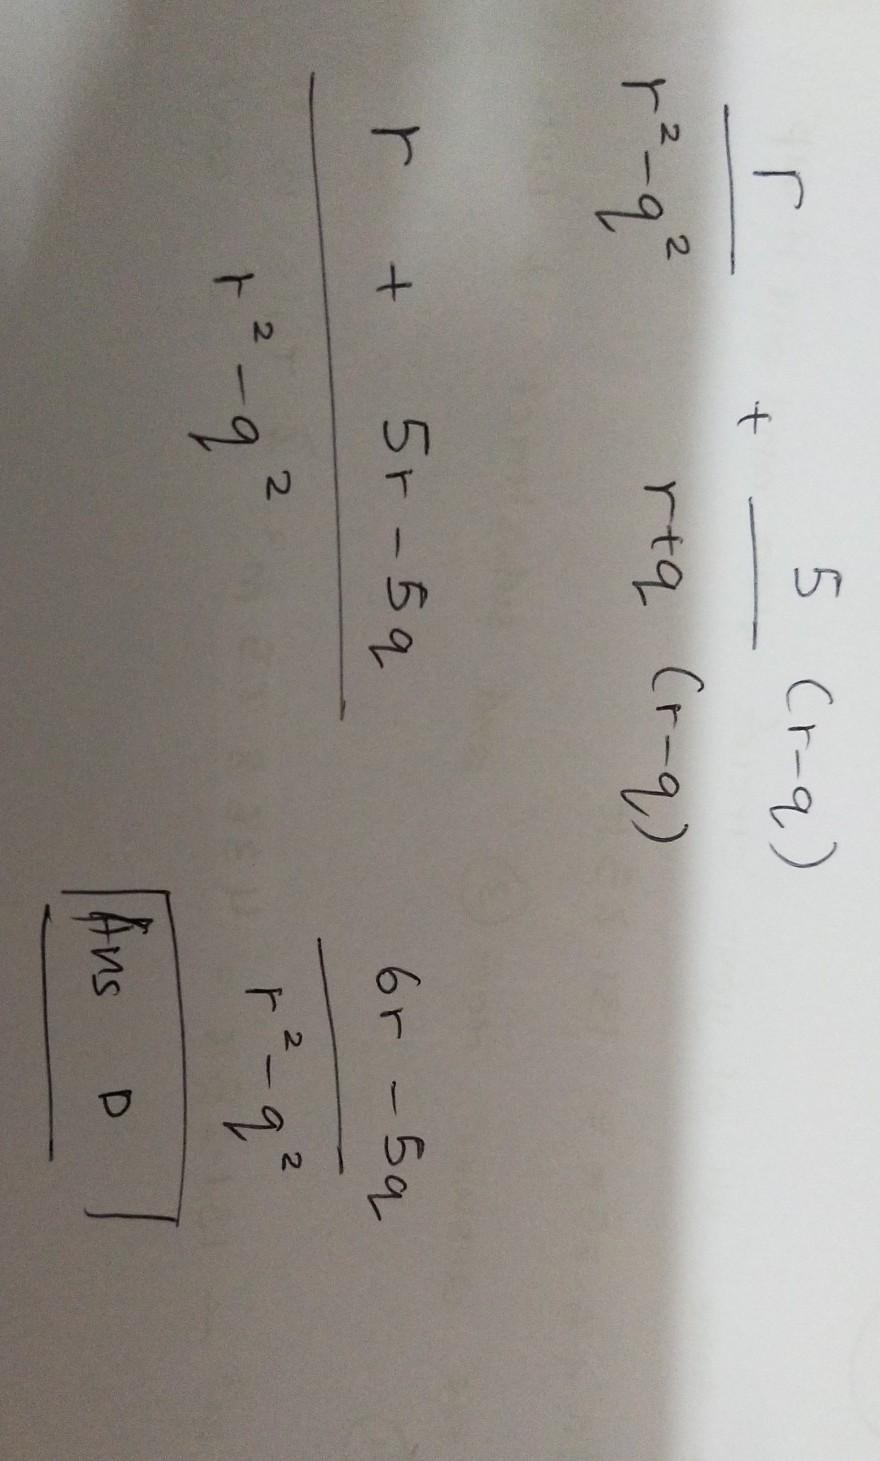 r/r²-q² + 5 (r-q)/r+q (r-q)
r + 5r - 5q/r² - q²
6r - 5q/r² - q²
Ans D